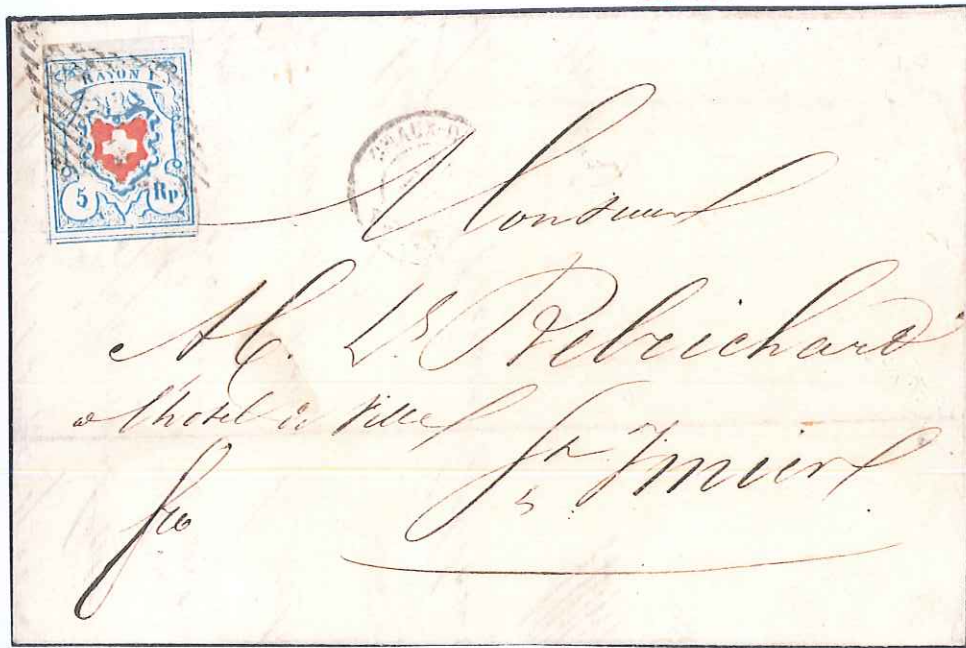 RAYON I.
5 Rp
Monsieur
Ls Rebrichard
a l'hotel de Ville
St Imier
fco